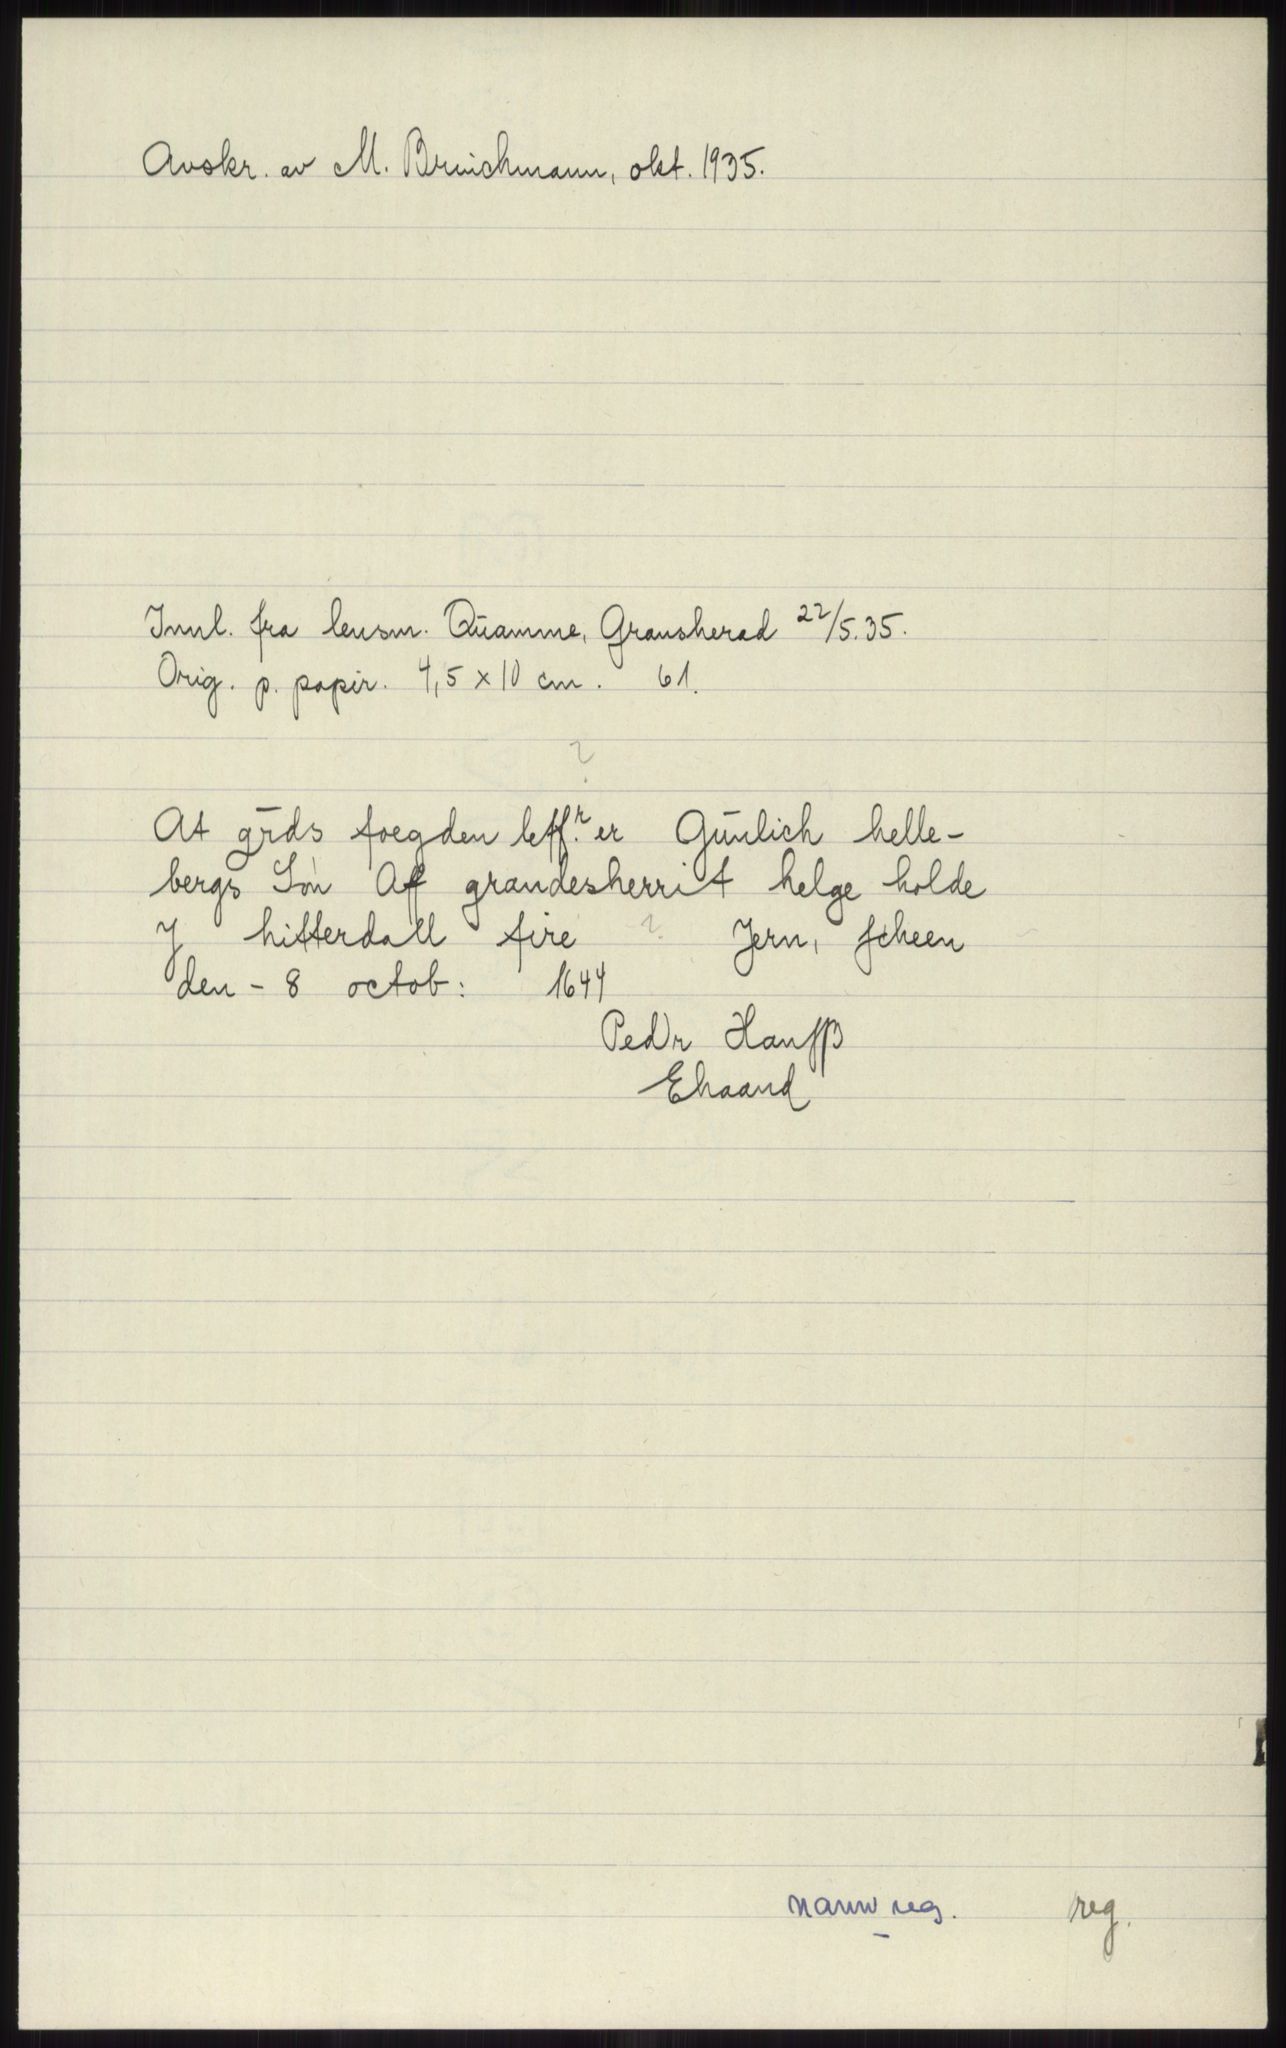 Avskr. av M. Brinchmann, okt. 1935.
Innl. fra lensm. Quamme, Gransherad 22/5.35.
Orig. p. papir. 4,5 x 10 cm. 61.
?
At grds foegden leffr er Gunlich helle-
bergs Søn Aff grandesherrit helge holde
J hitterdall fire ? Jern, scheen
den - 8 octob: 1644
Pedr Hanssß
Ehaand
navnreg. reg.